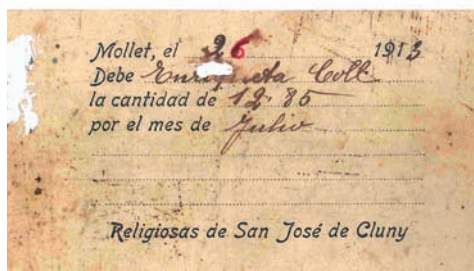 Mollet, el 26 1913
Debe Enriqueta Coll
la cantidad de 12·85
por el mes de Julio
Religiosas de San José de Cluny